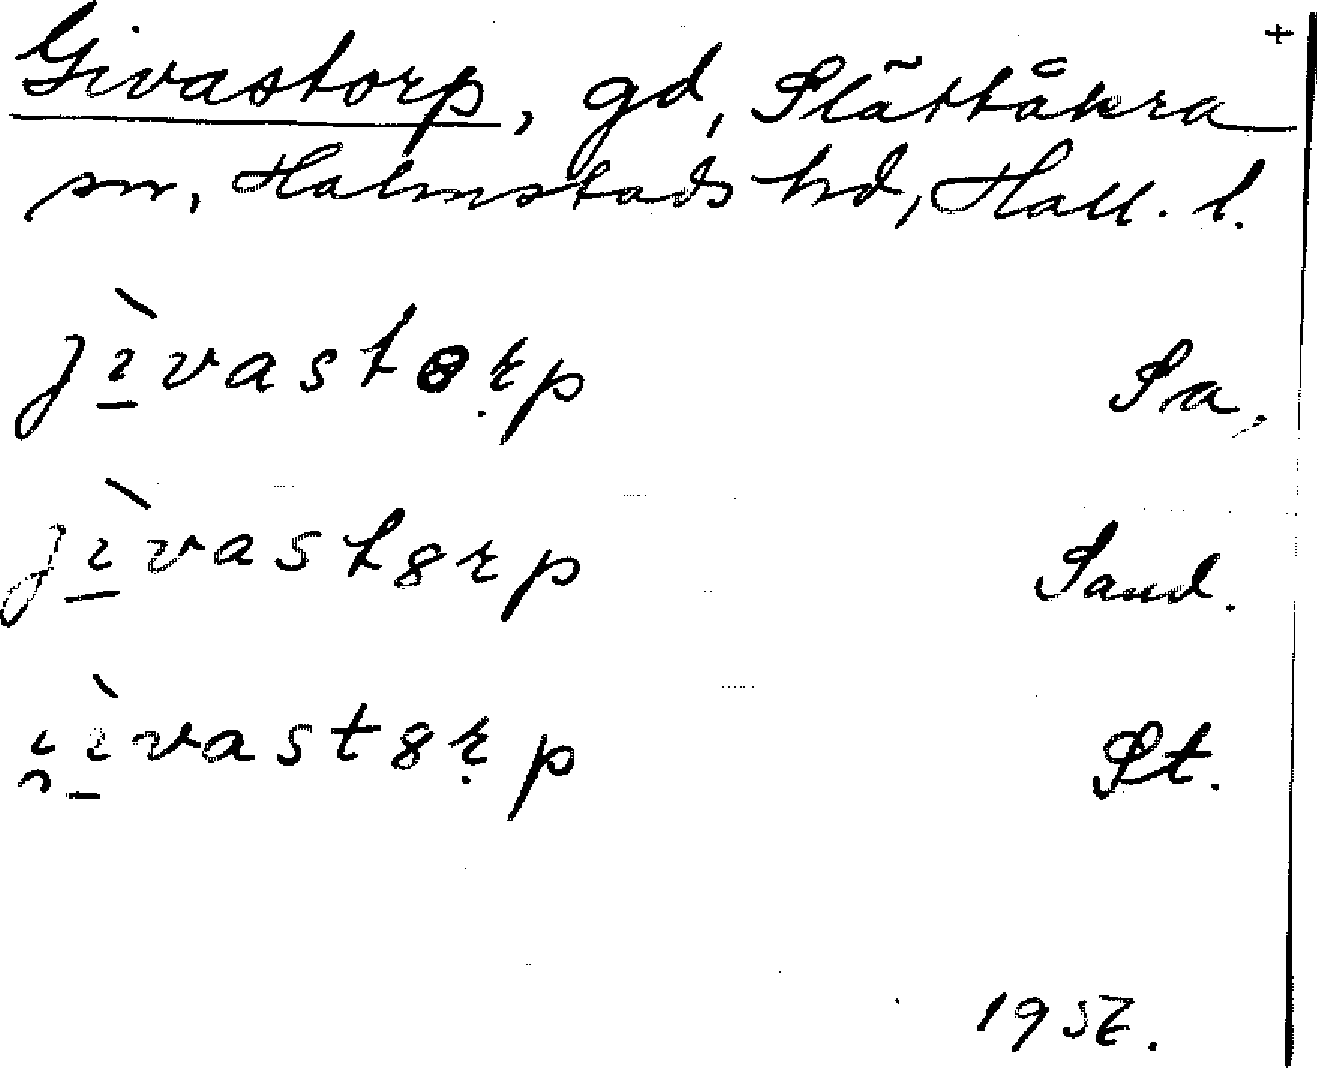 +
Givastorp, gd, Slättåkra
sn, Halmstads hd, Hall. l.
jı̱̀vastɵṛp Sa,
jı̱̀vast8rp Sand.
ı̯ı̱̀vast8ṛp St.
1957.